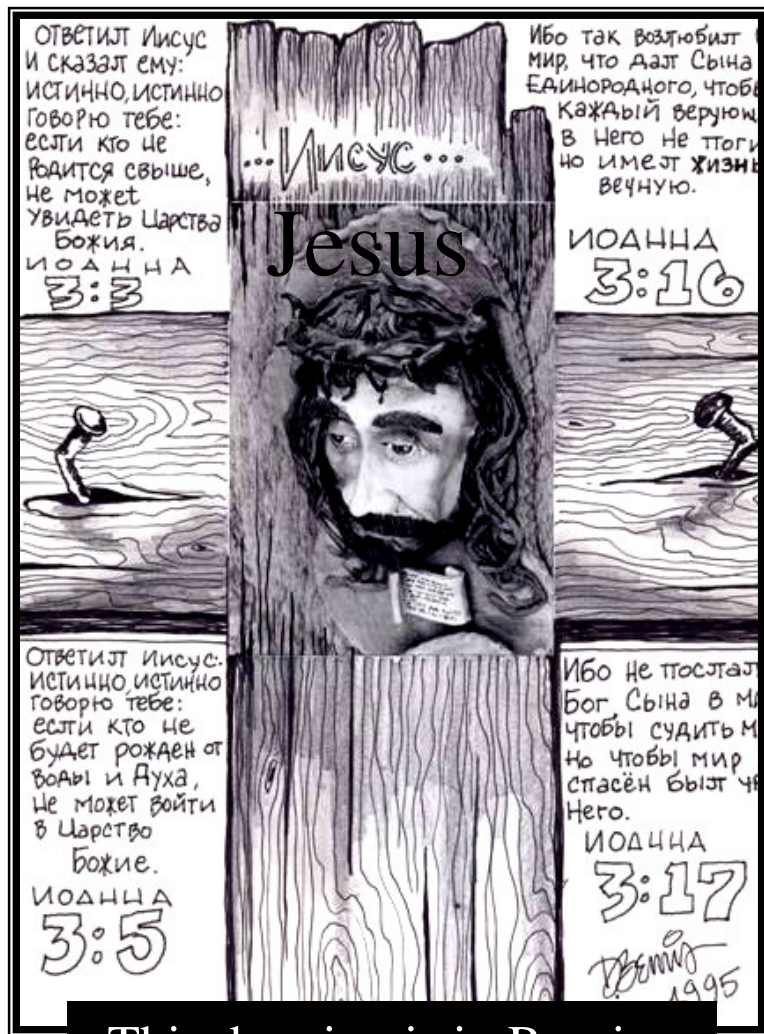 ОТВЕТИЛ Иисус
И СКАЗАЛ ему:
ИСТИННО, ИСТИННО
ГОВОРЮ ТЕБЕ:
если кто не
РОДИТСЯ СВЫШЕ,
не может
УВИДЕТЬ ЦАРСТВА
БОЖИЯ.
ИОАННА
3:3
...Иисус...
Ибо так возлюбил
мир, что дал Сына
Единородного,
каждый
в Него не
но имел жизнь
вечную.
ИОАННА
3:16
Jesus
Ответил Иисус:
истинно, истинно
говорю тебе:
если кто не
будет рожден от
воды и Духа,
не может войти
в Царство
Божие.
ИОАННА
3:5
Ибо не послал
Бог Сына в
чтобы судить
но чтобы мир
спасён был
Него.
ИОАННА
3:17
1995